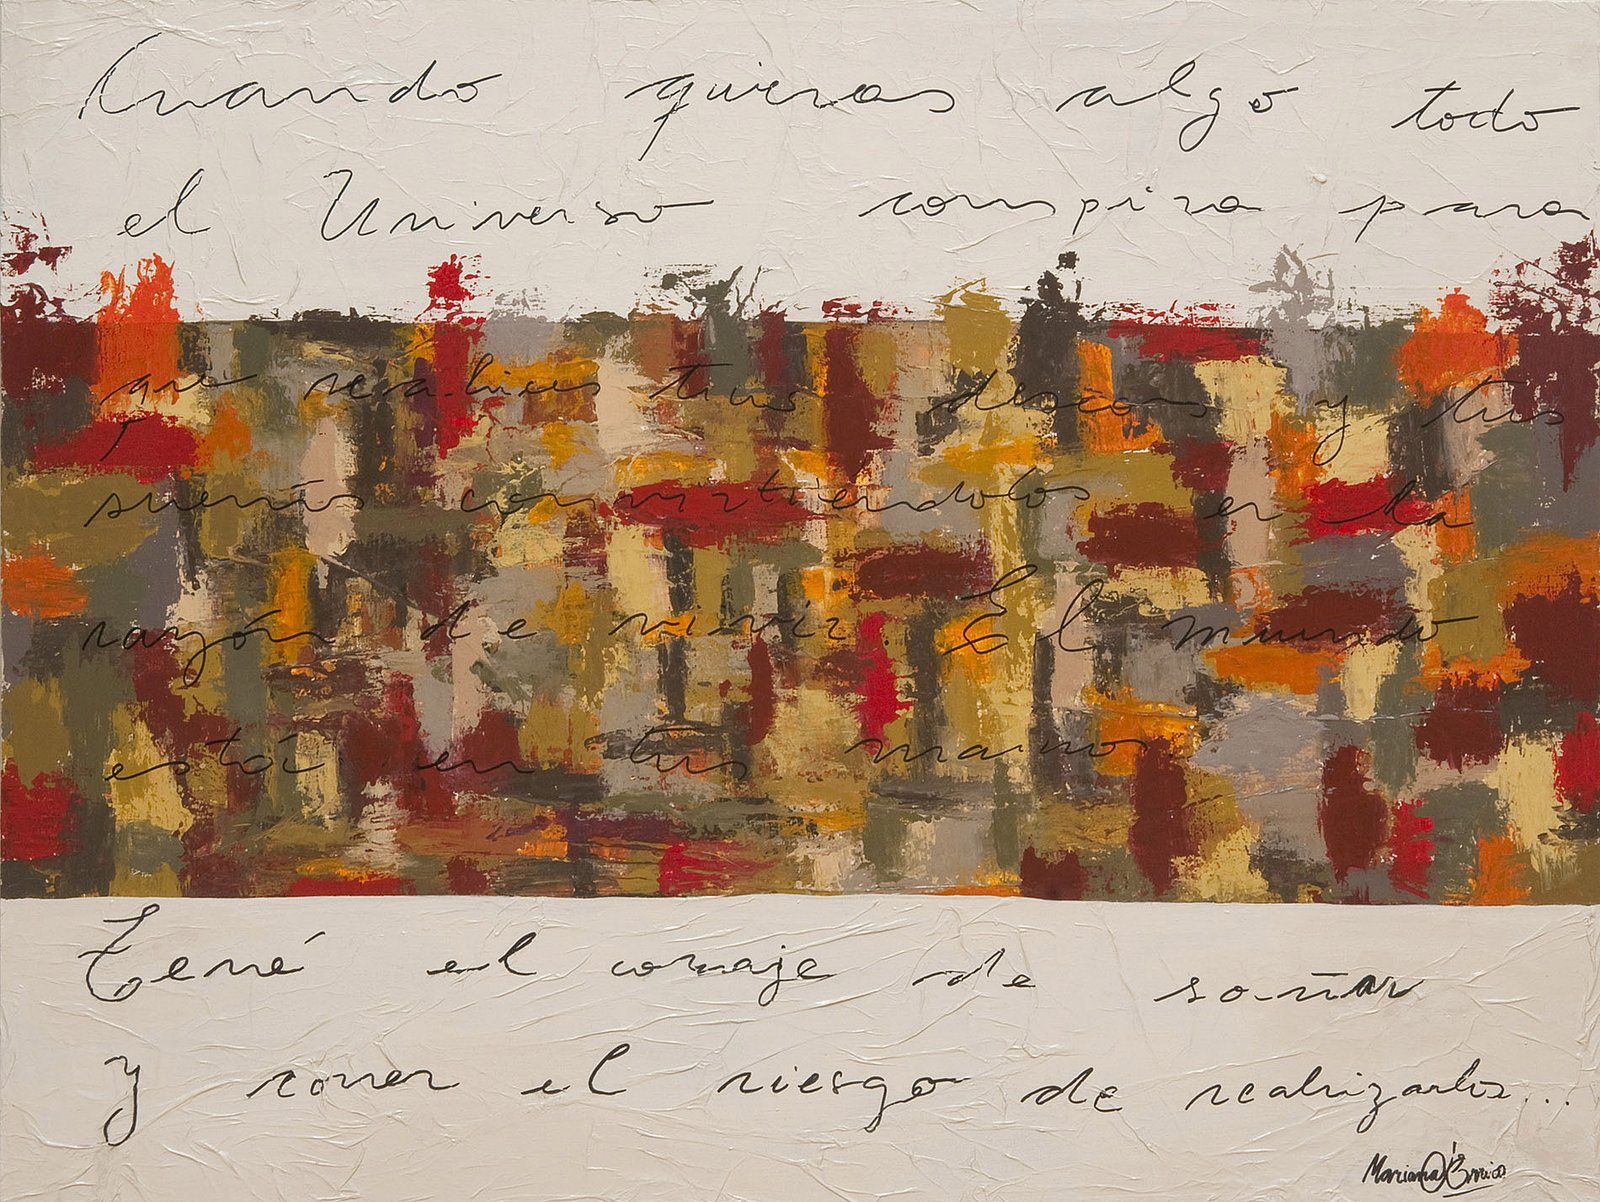 Cuando quieras algo todo
el Universo conspira para
que realices tus deseos y tus
sueños convirtiendolos en la
razón de vivir El mundo
está en tus manos
Tené el coraje de soñar
y correr el riesgo de realizarlos...
Mariana